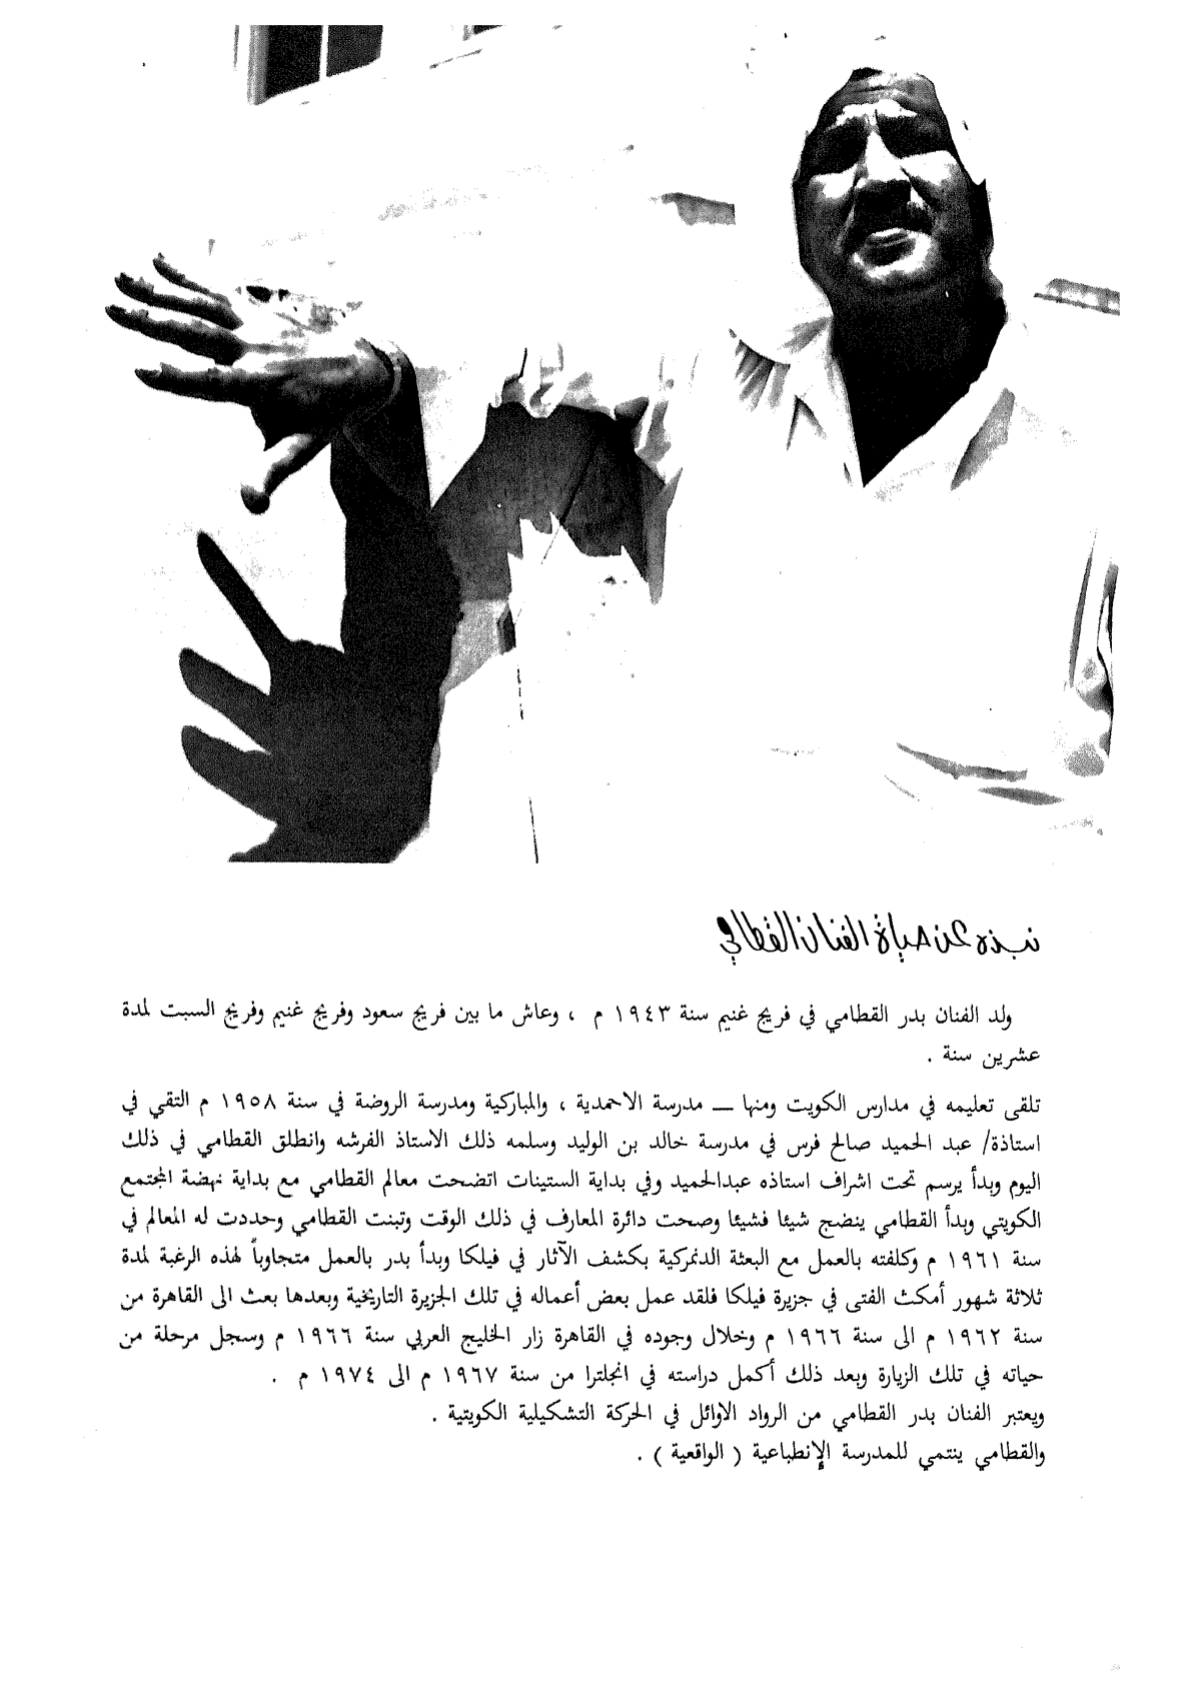 نبذه عن حياة الفنان القطامي
ولد الفنان بدر القطامي في فريج غنيم سنة ١٩٤٣ م ، وعاش ما بين فريج سعود وفريج غنيم وفريج السبت لمدة
عشرين سنة .
تلقى تعليمه في مدارس الكويت ومنها ـــ مدرسة الاحمدية ، والمباركية ومدرسة الروضة في سنة ١٩٥٨ م التقي في
استاذة/ عبد الحميد صالح فرس في مدرسة خالد بن الوليد وسلمه ذلك الاستاذ الفرشه وانطلق القطامي في ذلك
اليوم وبدأ يرسم تحت اشراف استاذه عبدالحميد وفي بداية الستينات اتضحت معالم القطامي مع بداية نهضة المجتمع
الكويتي وبدأ القطامي ينضج شيئا فشيئا وصحت دائرة المعارف في ذلك الوقت وتبنت القطامي وحددت له المعالم في
سنة ١٩٦١ م وكلفته بالعمل مع البعثة الدنمركية بكشف الآثار في فيلكا وبدأ بدر بالعمل متجاوباً لهذه الرغبة لمدة
ثلاثة شهور أمكث الفتى في جزيرة فيلكا فلقد عمل بعض أعماله في تلك الجزيرة التاريخية وبعدها بعث الى القاهرة من
سنة ١٩٦٢ م الى سنة ١٩٦٦ م وخلال وجوده في القاهرة زار الخليج العربي سنة ١٩٦٦ م وسجل مرحلة من
حياته في تلك الزيارة وبعد ذلك أكمل دراسته في انجلترا من سنة ١٩٦٧ م الى ١٩٧٤ م .
ويعتبر الفنان بدر القطامي من الرواد الاوائل في الحركة التشكيلية الكويتية .
والقطامي ينتمي للمدرسة الإنطباعية ( الواقعية ) .